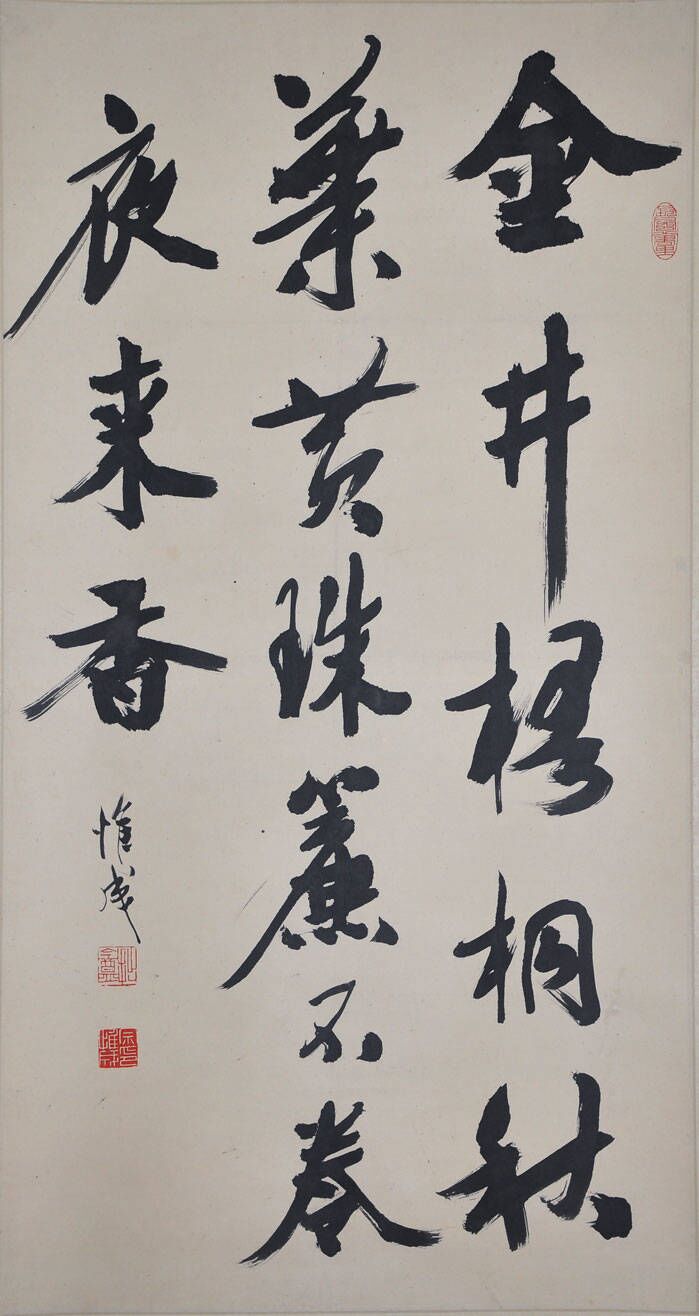 金井梧桐秋
葉黄珠簾不卷
夜来香
惟成